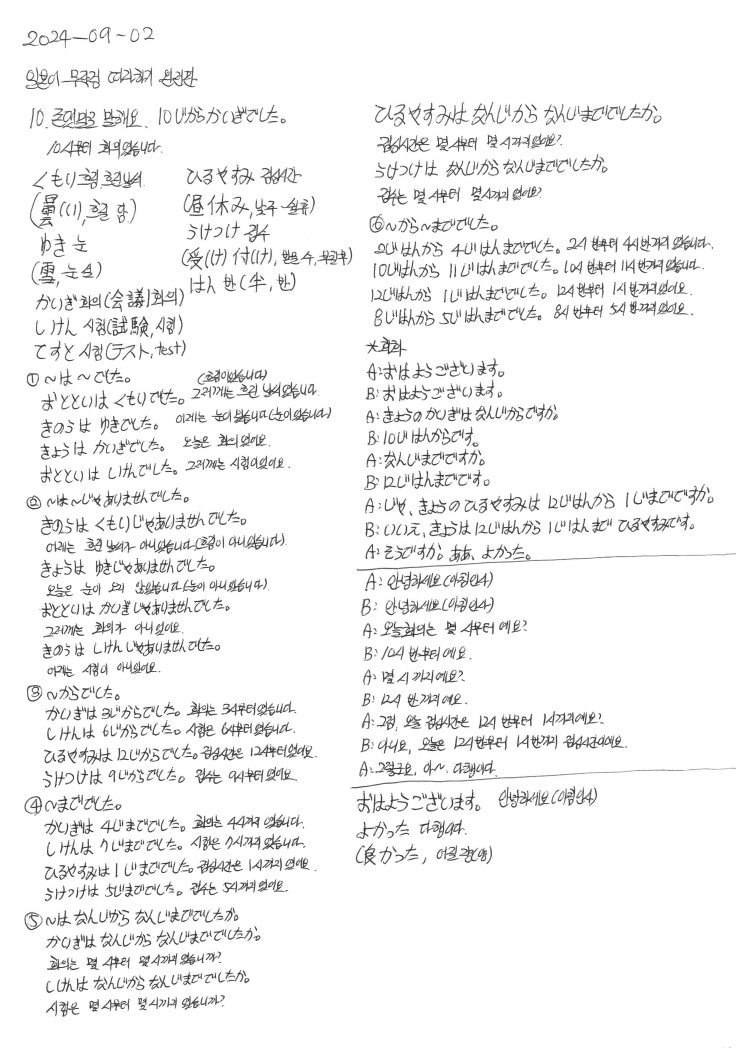 2024-09-02
일본어 무작정 따라하기 완전판
10. 존댓말로 말해요. 10じからかいぎでした。
10시부터 회의였습니다.
くもり 흐림, 흐린 날씨
(曇(り), 흐릴 담)
ゆき 눈
(雪, 눈 설)
かいぎ 회의(会議, 회의)
しけん 시험(試験, 시험)
てすと 시험(テスト, test)
ひるやすみ 점심시간
(昼休み, 낮 주-쉴 휴)
うけつけ 접수
(受(け)付(け), 받을 수, 부칠 부)
はん 반(半, 반)
① ~は~でした。 (흐림이었습니다)
おとといは くもりでした。 그저께는 흐린 날씨였습니다.
きのうは ゆきでした。 어제는 눈이 왔습니다(눈이었습니다)
きょうは かいぎでした。 오늘은 회의였어요.
おとといは しけんでした。 그저께는 시험이었어요.
② ~は~じゃありませんでした。
きのうは くもりじゃありませんでした。
어제는 흐린 날씨가 아니었습니다(흐림이 아니었습니다).
きょうは ゆきじゃありませんでした。
오늘은 눈이 오지 않았습니다(눈이 아니었습니다).
おとといは かいぎじゃありませんでした。
그저께는 회의가 아니었어요.
きのうは しけんじゃありませんでした。
어제는 시험이 아니었어요.
③ ~からでした。
かいぎは 3じからでした。 회의는 3시부터였습니다.
しけんは 6じからでした。 시험은 6시부터였습니다.
ひるやすみは 12じからでした。 점심시간은 12시부터였어요.
うけつけは 9じからでした。 접수는 9시부터였어요.
④ ~まででした。
かいぎは 4じまででした。 회의는 4시까지였습니다.
しけんは 7じまででした。 시험은 7시까지였습니다.
ひるやすみは 1じまででした。 점심시간은 1시까지였어요.
うけつけは 5じまででした。 접수는 5시까지였어요.
⑤ ~は なんじから なんじまででしたか。
かいぎは なんじから なんじまででしたか。
회의는 몇 시부터 몇 시까지였습니까?
しけんは なんじから なんじまででしたか。
시험은 몇 시부터 몇 시까지였습니까?
ひるやすみは なんじから なんじまででしたか。
점심시간은 몇 시부터 몇 시까지였어요?
うけつけは なんじから なんじまででしたか。
접수는 몇 시부터 몇 시까지였어요?
⑥ ~から~まででした。
2じはんから 4じはんまででした。 2시 반부터 4시 반까지였습니다.
10じはんから 11じはんまででした。 10시 반부터 11시 반까지였습니다.
12じはんから 1じはんまででした。 12시 반부터 1시 반까지였어요.
8じはんから 5じはんまででした。 8시 반부터 5시 반까지였어요.
*회화
A: おはようございます。
B: おはようございます。
A: きょうの かいぎは なんじからですか。
B: 10じはんからです。
A: なんじまでですか。
B: 12じはんまでです。
A: じゃ、きょうの ひるやすみは 12じはんから 1じまでですか。
B: いいえ、きょうは 12じはんから 1じはんまで ひるやすみです。
A: そうですか。ああ、よかった。
A: 안녕하세요(아침인사)
B: 안녕하세요(아침인사)
A: 오늘 회의는 몇 시부터예요?
B: 10시 반부터예요.
A: 몇 시까지예요?
B: 12시 반까지예요.
A: 그럼, 오늘 점심시간은 12시 반부터 1시까지예요?
B: 아니요, 오늘은 12시 반부터 1시 반까지 점심시간이에요.
A: 그렇군요, 아~. 다행이다.
おはようございます。 안녕하세요(아침인사)
よかった 다행이다.
(良かった, 어질 량(양))